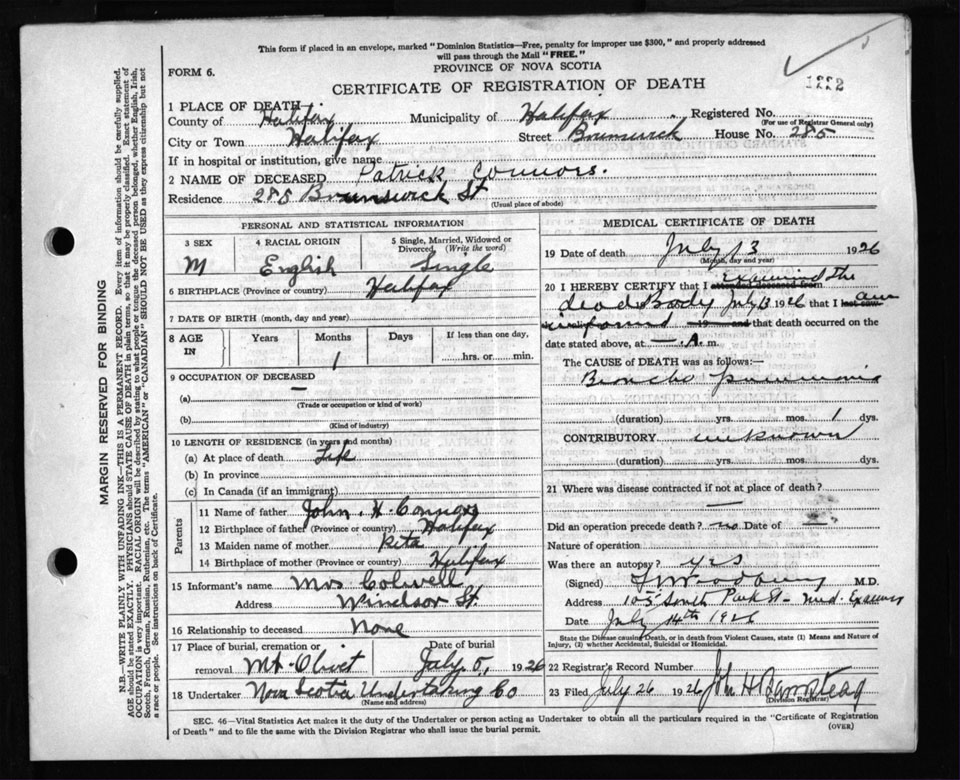 This form if placed in an envelope, marked "Dominion Statistics—Free, penalty for improper use $300," and properly addressed
will pass through the Mail "FREE."
FORM 6.
PROVINCE OF NOVA SCOTIA
CERTIFICATE OF REGISTRATION OF DEATH
1222
MARGIN RESERVED FOR BINDING
N.B.—WRITE PLAINLY WITH UNFADING INK—THIS IS A PERMANENT RECORD. Every item of information should be carefully supplied.
AGE should be stated EXACTLY. PHYSICIANS should STATE CAUSE OF DEATH in plain terms, so that it may be properly classified. Exact statement of
OCCUPATION is very important. RACIAL ORIGIN will be described by stating to what people or tongue the deceased person belonged, whether English, Irish,
Scotch, French, German, Russian, Ruthenian, etc. The terms "AMERICAN" or "CANADIAN" SHOULD NOT BE USED as they express citizenship but not
a race or people. See instructions on back of Certificate.
1 PLACE OF DEATH
County of Halifax Municipality of Halifax Registered No.
(For use of Registrar General only)
City or Town Halifax Street Brunswick House No. 285
If in hospital or institution, give name
2 NAME OF DECEASED Patrick Connors.
Residence 285 Brunswick St
(Usual place of abode)
PERSONAL AND STATISTICAL INFORMATION
3 SEX 4 RACIAL ORIGIN 5 Single, Married, Widowed or
Divorced. (Write the word)
M English Single
6 BIRTHPLACE (Province or country) Halifax
7 DATE OF BIRTH (month, day and year)
8 AGE IN Years Months Days If less than one day,
1 hrs. or min.
9 OCCUPATION OF DECEASED —
(a)
(Trade or occupation or kind of work)
(b)
(Kind of industry)
10 LENGTH OF RESIDENCE (in years and months)
(a) At place of death Life
(b) In province
(c) In Canada (if an immigrant)
Parents
11 Name of father John H Connors
12 Birthplace of father (Province or country) Halifax
13 Maiden name of mother Rita
14 Birthplace of mother (Province or country) Halifax
15 Informant's name Mrs Colwell
Address Windsor St.
16 Relationship to deceased None
17 Place of burial, cremation or Date of burial
removal Mt-Olivet July 0, 1926
18 Undertaker Nova Scotia Undertaking Co
(Name and address)
MEDICAL CERTIFICATE OF DEATH
19 Date of death July 13 1926
(Month, day and year)
20 I HEREBY CERTIFY that I attended deceased from Examined the
dead Body July 13 1926 that I last saw am
informed 19 and that death occurred on the
date stated above, at — A. m.
The CAUSE of DEATH was as follows:—
Broncho pneumonia
(duration) yrs. mos. 1 dys.
CONTRIBUTORY unknown
(duration) yrs. mos. dys.
21 Where was disease contracted if not at place of death?
—
Did an operation precede death? no Date of —
Nature of operation
Was there an autopsy? yes
(Signed) Woodbury M.D.
Address 105 South Park St - Med. Examiner
Date July 14th 1926
State the Disease causing Death, or in death from Violent Causes, state (1) Means and Nature of
Injury, (2) whether Accidental, Suicidal or Homicidal.
22 Registrar's Record Number
23 Filed July 26 1926 John H Barnstead
(Division Registrar)
SEC. 46—Vital Statistics Act makes it the duty of the Undertaker or person acting as Undertaker to obtain all the particulars required in the "Certificate of Registration
of Death" and to file the same with the Division Registrar who shall issue the burial permit.
(OVER)